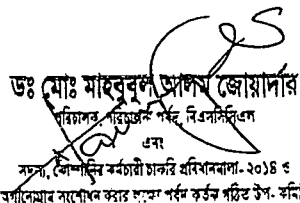 ডঃ মোঃ মাহবুবুল আলম জোয়ার্দার
পরিচালক, পরিচালনা পর্ষদ, বিএসসিসিএল
এবং
সদস্য, কোম্পানির কর্মচারী চাকরি প্রবিধানমালা- ২০১৪ ও
সংশোধন করার পর্ষদ কর্তৃক গঠিত উপ- কমিটি